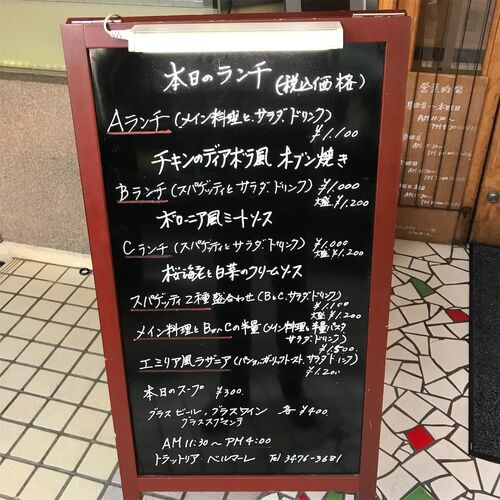 本日のランチ (税込価格)
Aランチ (メイン料理と、サラダ、ドリンク)
¥1.100
チキンのディアボラ風 オーブン焼き
Bランチ (スパゲッティとサラダ、ドリンク) ¥1.000
大盛 ¥1.200
ボロニア風ミートソース
Cランチ (スパゲッティとサラダ、ドリンク) ¥1.000
大盛 ¥1.200
桜海老と白菜のクリームソース
スパゲッティ2種盛合わせ (B&C、サラダ、ドリンク)
¥1.100
大盛 ¥1.200
メイン料理とBorCの半量 (メイン料理、半量パスタ
サラダ、ドリンク)
¥1.500
エミリア風ラザニア (パンorガーリックトースト、サラダ、ドリンク)
¥1.200
本日のスープ ¥300
グラスビール、グラスワイン 各 ¥400
グラススプマンテ
AM11:30〜PM4:00
トラットリア・ベルマーレ Tel 3476-3681
営業時間
AM11:30〜